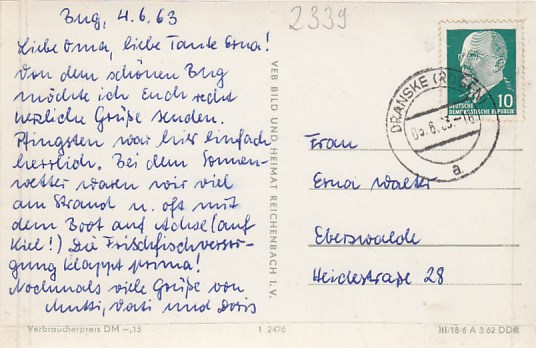 Bug, 4.6.63
Liebe Oma, liebe Tante Erna!
Von dem schönen Bug
möchte ich Euch recht
herzliche Grüße senden.
Pfingsten war hier einfach
herrlich. Bei dem Sonnen-
wetter waren wir viel
am Strand u. oft mit
dem Boot auf Achse (auf
Kiel!) Die Frischfischversor-
gung klappt prima!
Nochmals viele Grüße von
Mutti, Vati und Doris
Verbraucherpreis DM -,15
VEB BILD UND HEIMAT REICHENBACH I. V.
1 2476
2339
DEUTSCHE
DEMOKRATISCHE REPUBLIK
10
DRANSKE (RÜGEN)
a
Frau
Erna Walter
Eberswalde
Heidestraße 28
III/18/6 A 3/62 DDR